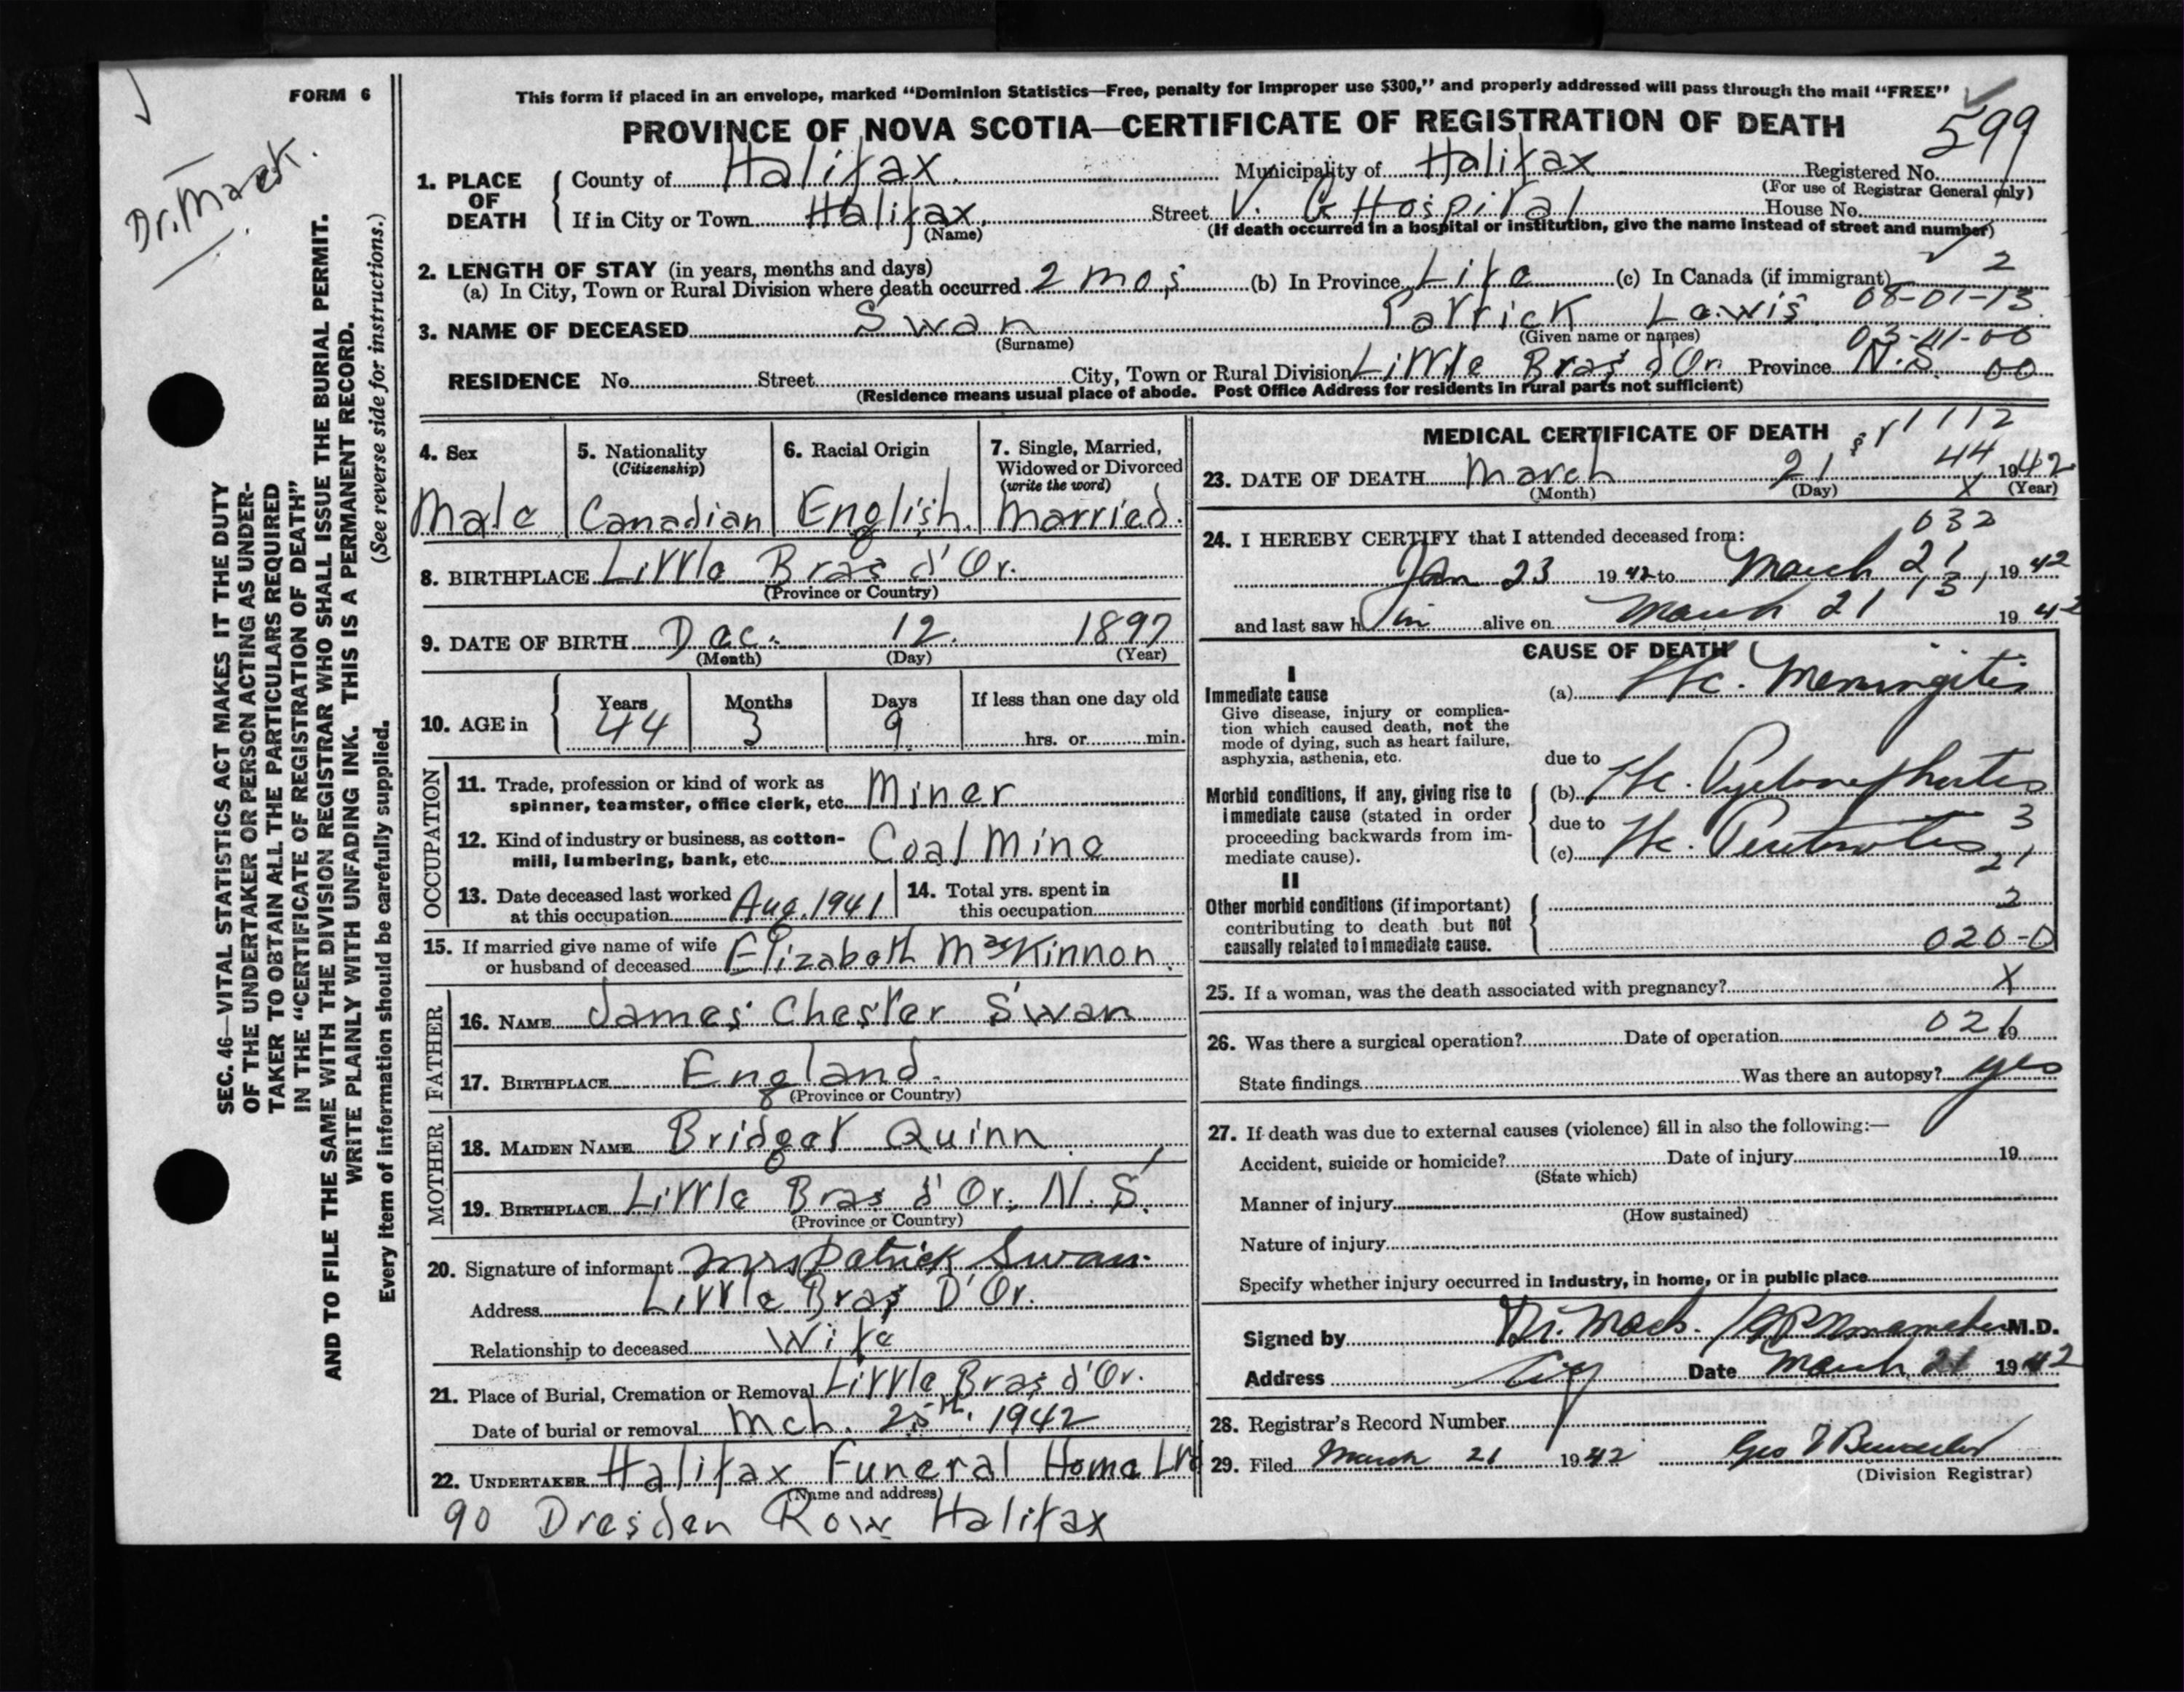 FORM 6
This form if placed in an envelope, marked “Dominion Statistics—Free, penalty for improper use $300,” and properly addressed will pass through the mail “FREE”
PROVINCE OF NOVA SCOTIA—CERTIFICATE OF REGISTRATION OF DEATH
599
Dr. Mack.
SEC. 46—VITAL STATISTICS ACT MAKES IT THE DUTY
OF THE UNDERTAKER OR PERSON ACTING AS UNDER-
TAKER TO OBTAIN ALL THE PARTICULARS REQUIRED
IN THE “CERTIFICATE OF REGISTRATION OF DEATH”
AND TO FILE THE SAME WITH THE DIVISION REGISTRAR WHO SHALL ISSUE THE BURIAL PERMIT.
WRITE PLAINLY WITH UNFADING INK. THIS IS A PERMANENT RECORD.
Every item of information should be carefully supplied. (See reverse side for instructions.)
1. PLACE OF DEATH County of Halifax. Municipality of Halifax Registered No.
(For use of Registrar General only)
If in City or Town Halifax. Street V. G Hospital House No.
(Name) (If death occurred in a hospital or institution, give the name instead of street and number)
2. LENGTH OF STAY (in years, months and days)
(a) In City, Town or Rural Division where death occurred 2 mos (b) In Province Life (c) In Canada (if immigrant) 2
08-01-13
3. NAME OF DECEASED Swan Patrick Lewis
(Surname) (Given name or names) 03-11-00
RESIDENCE No. Street City, Town or Rural Division Little Bras d'Or. Province N.S. 00
(Residence means usual place of abode. Post Office Address for residents in rural parts not sufficient)
4. Sex 5. Nationality (Citizenship) 6. Racial Origin 7. Single, Married, Widowed or Divorced (write the word)
Male Canadian English. Married.
8. BIRTHPLACE Little Bras d'Or.
(Province or Country)
9. DATE OF BIRTH Dec. 12. 1897
(Month) (Day) (Year)
10. AGE in Years Months Days If less than one day old
44 3 9 hrs. or min.
OCCUPATION
11. Trade, profession or kind of work as
spinner, teamster, office clerk, etc. Miner
12. Kind of industry or business, as cotton-
mill, lumbering, bank, etc. Coal Mine
13. Date deceased last worked
at this occupation Aug. 1941 14. Total yrs. spent in this occupation
15. If married give name of wife
or husband of deceased Elizabeth MacKinnon.
FATHER
16. NAME James Chester Swan
17. BIRTHPLACE England.
(Province or Country)
MOTHER
18. MAIDEN NAME Bridget Quinn
19. BIRTHPLACE Little Bras d'Or, N.S.
(Province or Country)
20. Signature of informant Mrs Patrick Swan.
Address Little Bras D'Or.
Relationship to deceased Wife
21. Place of Burial, Cremation or Removal Little Bras d'Or.
Date of burial or removal Mch. 25th. 1942
22. UNDERTAKER Halifax Funeral Home Ltd
(Name and address)
90 Dresden Row Halifax
MEDICAL CERTIFICATE OF DEATH 1112
44
23. DATE OF DEATH March 21 1942
(Month) (Day) (Year)
X
032
24. I HEREBY CERTIFY that I attended deceased from:
Jan 23 1942 to March 21, 1942
131
and last saw him alive on March 21 1942
CAUSE OF DEATH
I
Immediate cause
Give disease, injury or complica-
tion which caused death, not the
mode of dying, such as heart failure,
asphyxia, asthenia, etc.
(a) Meningitis
due to
Morbid conditions, if any, giving rise to
immediate cause (stated in order
proceeding backwards from im-
mediate cause).
(b) Pyelonephritis
due to 3
(c) Peritonitis
21
II
Other morbid conditions (if important)
contributing to death but not
causally related to immediate cause.
2
020-0
25. If a woman, was the death associated with pregnancy? X
021
26. Was there a surgical operation? Date of operation 19
State findings Was there an autopsy? yes
27. If death was due to external causes (violence) fill in also the following:—
Accident, suicide or homicide? Date of injury 19
(State which)
Manner of injury
(How sustained)
Nature of injury
Specify whether injury occurred in industry, in home, or in public place
Signed by Dr. Mack. M.D.
Address City Date March 21 1942
28. Registrar's Record Number
29. Filed March 21 1942 Geo
(Division Registrar)